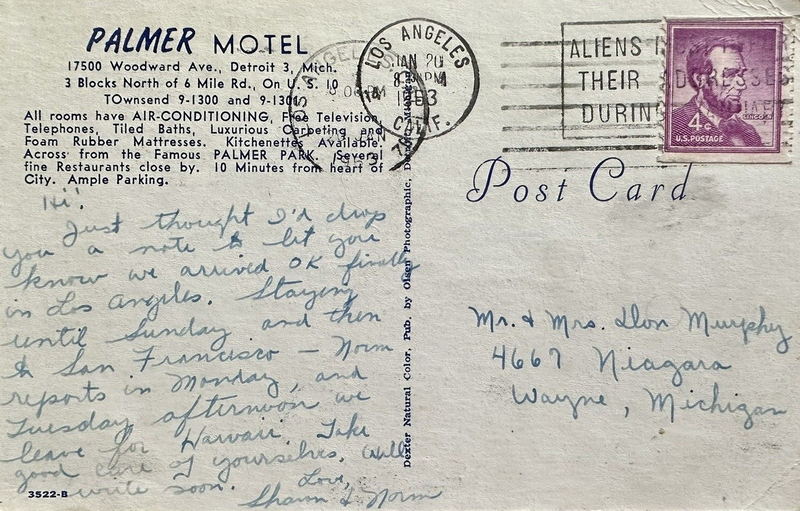 PALMER MOTEL
17500 Woodward Ave., Detroit 3, Mich.
3 Blocks North of 6 Mile Rd., On U. S. 10
TOwnsend 9-1300 and 9-1301
All rooms have AIR-CONDITIONING, Free Television,
Telephones, Tiled Baths, Luxurious Carpeting and
Foam Rubber Mattresses. Kitchenettes Available.
Across from the Famous PALMER PARK. Several
fine Restaurants close by. 10 Minutes from heart of
City. Ample Parking.
Hi!
Just thought I'd drop
you a note to let you
know we arrived OK finally
in Los Angeles. Staying
until Sunday and then
to San Francisco — Norm
reports in Monday, and
Tuesday afternoon we
leave for Hawaii. Take
good care of yourselves. Will
write soon.
Love,
Sharon & Norm
3522-B
Dexter Natural Color, Pub. by Olsen Photographic,
LOS ANGELES
JAN 20
PM
CALIF.
ALIENS
THEIR ADDRESSES
DURING
4¢
U.S. POSTAGE
LINCOLN
Post Card
Mr. & Mrs. Don Murphy
4667 Niagara
Wayne, Michigan